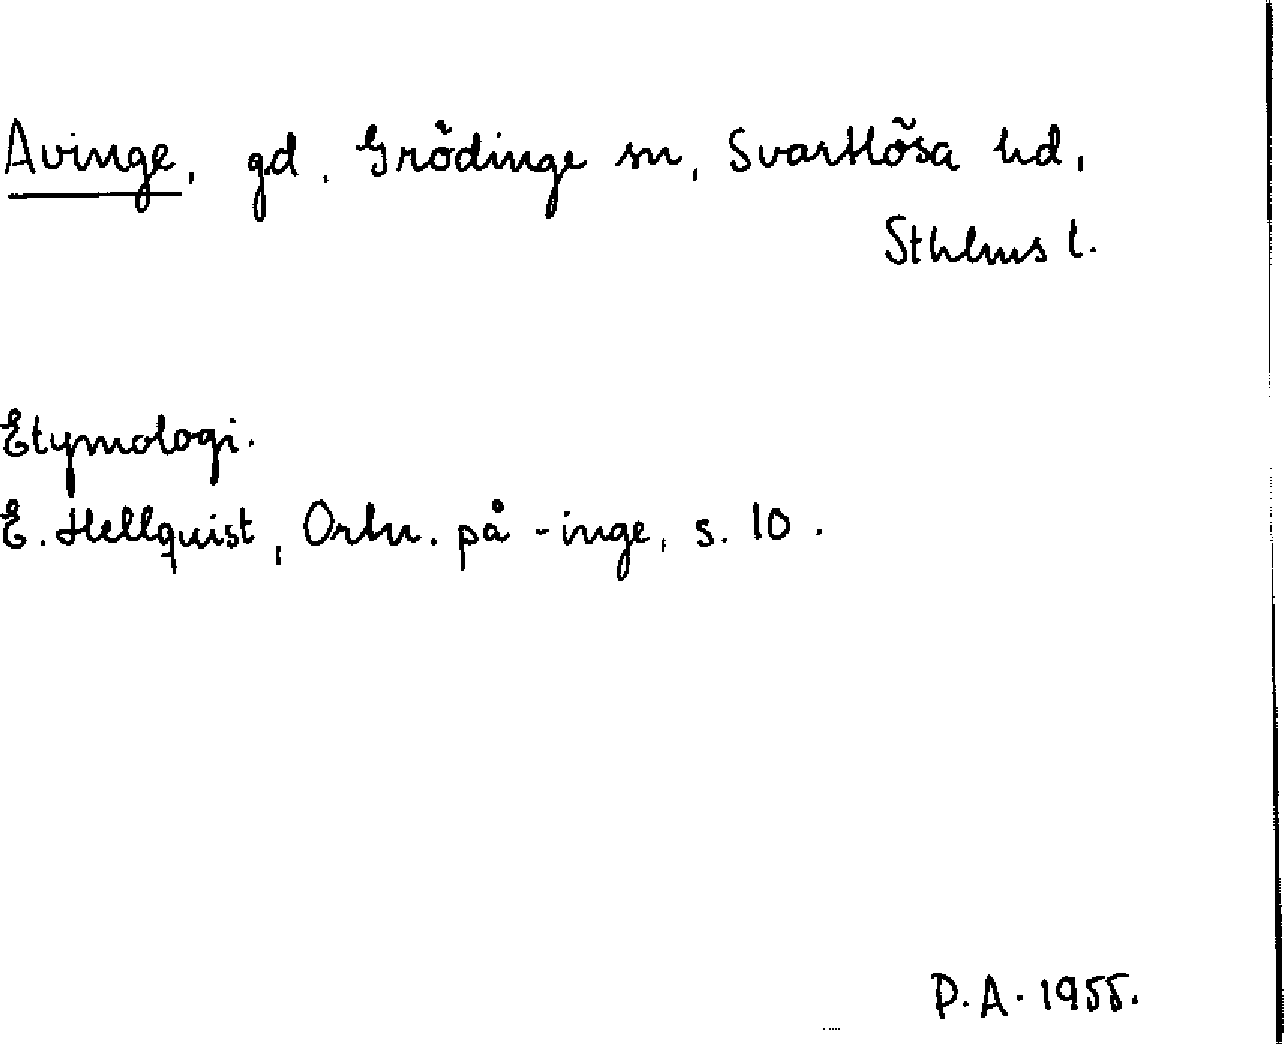 Avinge, gd, Grödinge sn, Svartlösa hd,
Sthlms l.
Etymologi.
E. Hellquist, Ortn. på -inge, s. 10.
P.A. 1955.